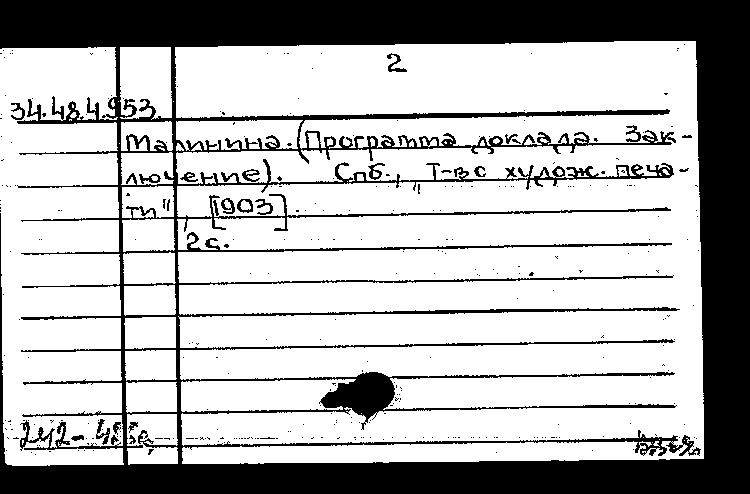 2
34.48.4.953.
Малинина. (Программа доклада. Зак-
лючение). Спб., „Т-во худож. печа-
ти", [1903].
2 с.